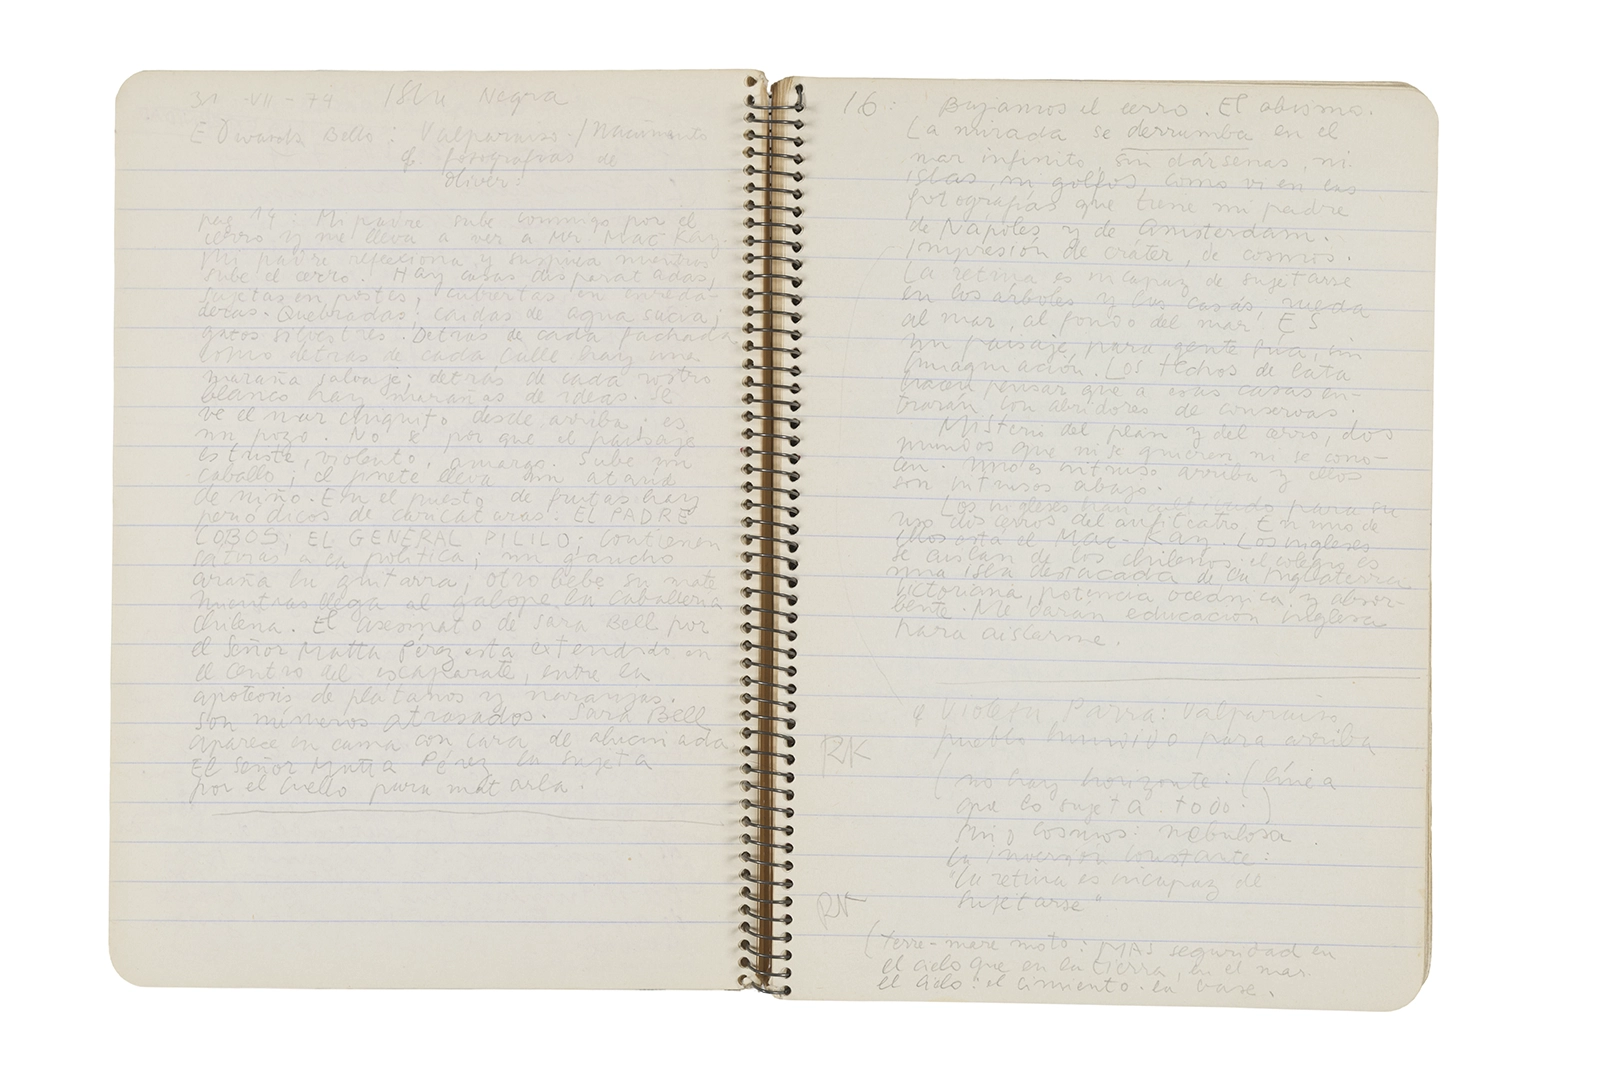 31 -VII-74 Isla Negra
E Dwards Bello: Valparaiso-/Nacimiento
fotografías de
Oliver:
pag 14: Mi padre sube conmigo por el
cerro y me lleva a ver a Mr Mac-Kay.
Mi padre reflecciona y suspira mientras
sube el cerro. Hay casas disparatadas,
sujetas en postes, cubiertas en enreda-
deras. Quebradas; caidas de agua sucia;
gatos silvestres. Detrás de cada fachada
como detrás de cada calle hay una
maraña salvaje; detrás de cada rostro
blanco hay marañas de ideas. Se
ve el mar chiquito desde arriba; es
un pozo. No sé por que el paisaje
es triste, violento, amargo. Sube un
caballo; el jinete lleva un ataúd
de niño. En el puesto de frutas hay
periódicos de caricaturas. EL PADRE
LOBOS; EL GENERAL PILILO; contienen
sátiras a la política; un gaucho
araña la guitarra; otro bebe su mate
mientras llega al galope la caballería
chilena. El asesinato de Sara Bell por
el Señor Matta Pérez esta extendido en
el centro del escaparate, entre la
apoteosis de plátanos y naranjas.
Son números atrasados. Sara Bell
aparece en cama con cara de alucinada
El Señor Matta Pérez la sujeta
por el cuello para matarla.
16: Bajamos el cerro. El abismo.
La mirada se derrumba en el
mar infinito, sin dársenas, ni
islas, ni golfos, como vi en las
fotografías que tiene mi padre
de Nápoles y de Amsterdam.
Impresión de cráter, de cosmos.
La retina es incapaz de sujetarse
en los árboles y las casas, rueda
al mar, al fondo del mar. ES
un paisaje para gente fría, sin
imaginación. Los techos de lata
hacen pensar que a esas casas en-
trarán con abridores de conservas.
Misterio del plan y del cerro, dos
mundos que ni se quieren ni se cono-
cen. Uno es intruso arriba y ellos
son intrusos abajo.
Los ingleses han cultivado para su
uso dos cerros del anfiteatro. En uno de
ellos está el Mac-Kay. Los ingleses
se aislan de los chilenos; el colegio es
una isla destacada de la Inglaterra
victoriana, potencia oceánica y absor-
bente. Me darán educación inglesa
para aislarme.
Violeta Parra: Valparaiso
pueblo hundido para arriba
RK
(no hay horizonte: (línea
que lo sujeta todo.)
cosmos: nebulosa
la inversión constante:
"la retina es incapaz de
sujetarse"
RK
(terre-mare moto: MAS seguridad en
el cielo que en la tierra, en el mar.
el cielo: el cimiento. la base.